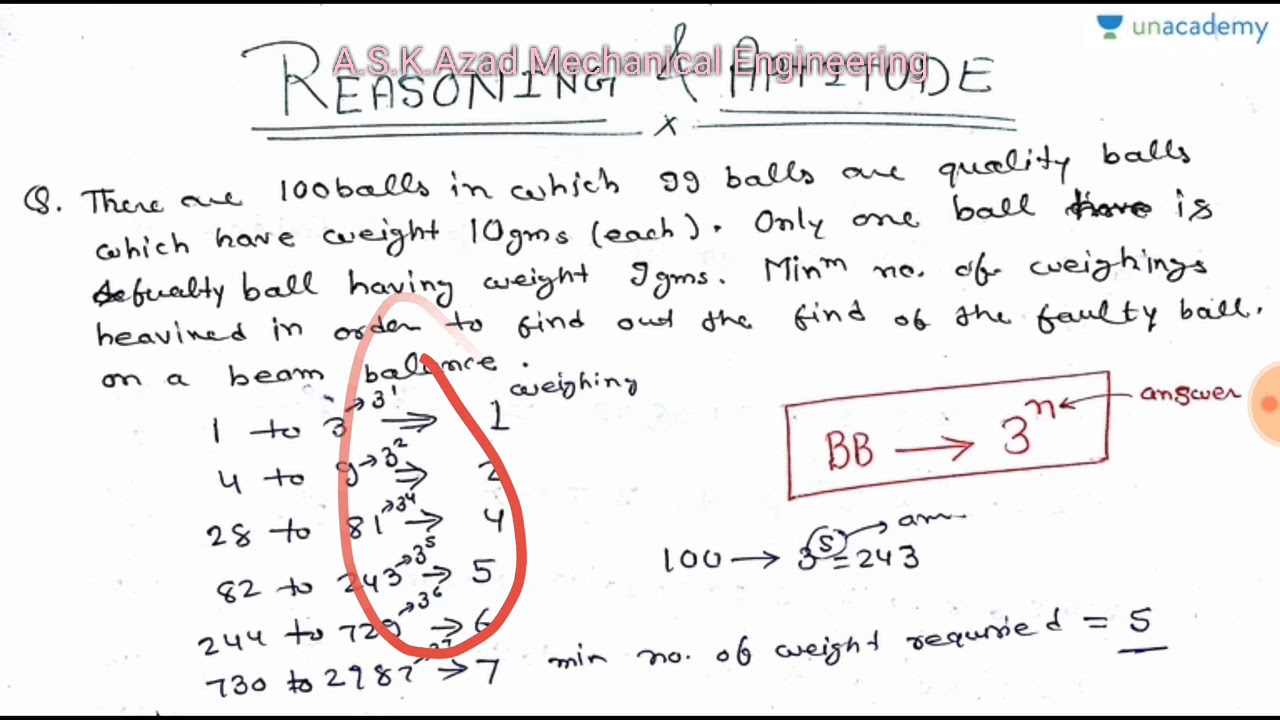 unacademy
A.S.K.Azad Mechanical Engineering
REASONING & APTITUDE
x
Q. There are 100 balls in which 99 balls are quality balls
which have weight 10gms (each). Only one ball is
fualty ball having weight 9gms. Minm no. of weighings
heavined in order to find out the find of the faulty ball.
on a beam balance.
weighing
1 to 3 → 3^1 ⇒ 1
4 to 9 → 3^2 ⇒ 2
28 to 81 → 3^4 → 4
82 to 243 → 3^5 → 5
244 to 729 → 3^6 → 6
730 to 2187 → 7
BB → 3^n ← answer
100 → 3^5 = 243 → am
min no. of weight requried = 5